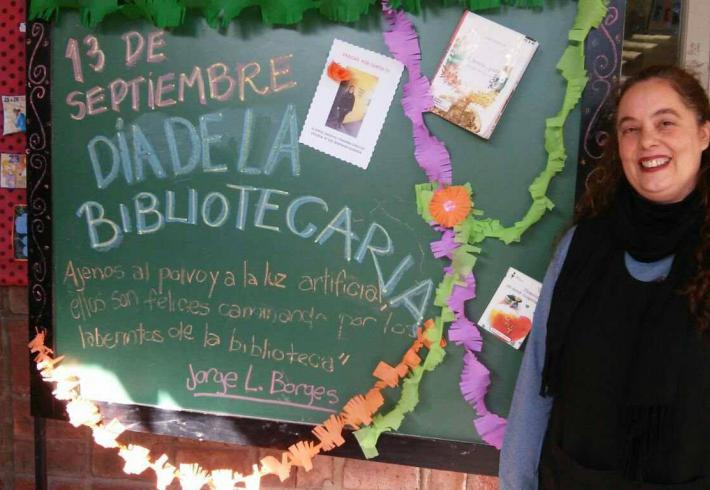 13 DE
SEPTIEMBRE
DÍA DE LA
BIBLIOTECARIA
Ajenos al polvo y a la luz artificial,
ellos son felices caminando por los
laberintos de la biblioteca"
Jorge L. Borges